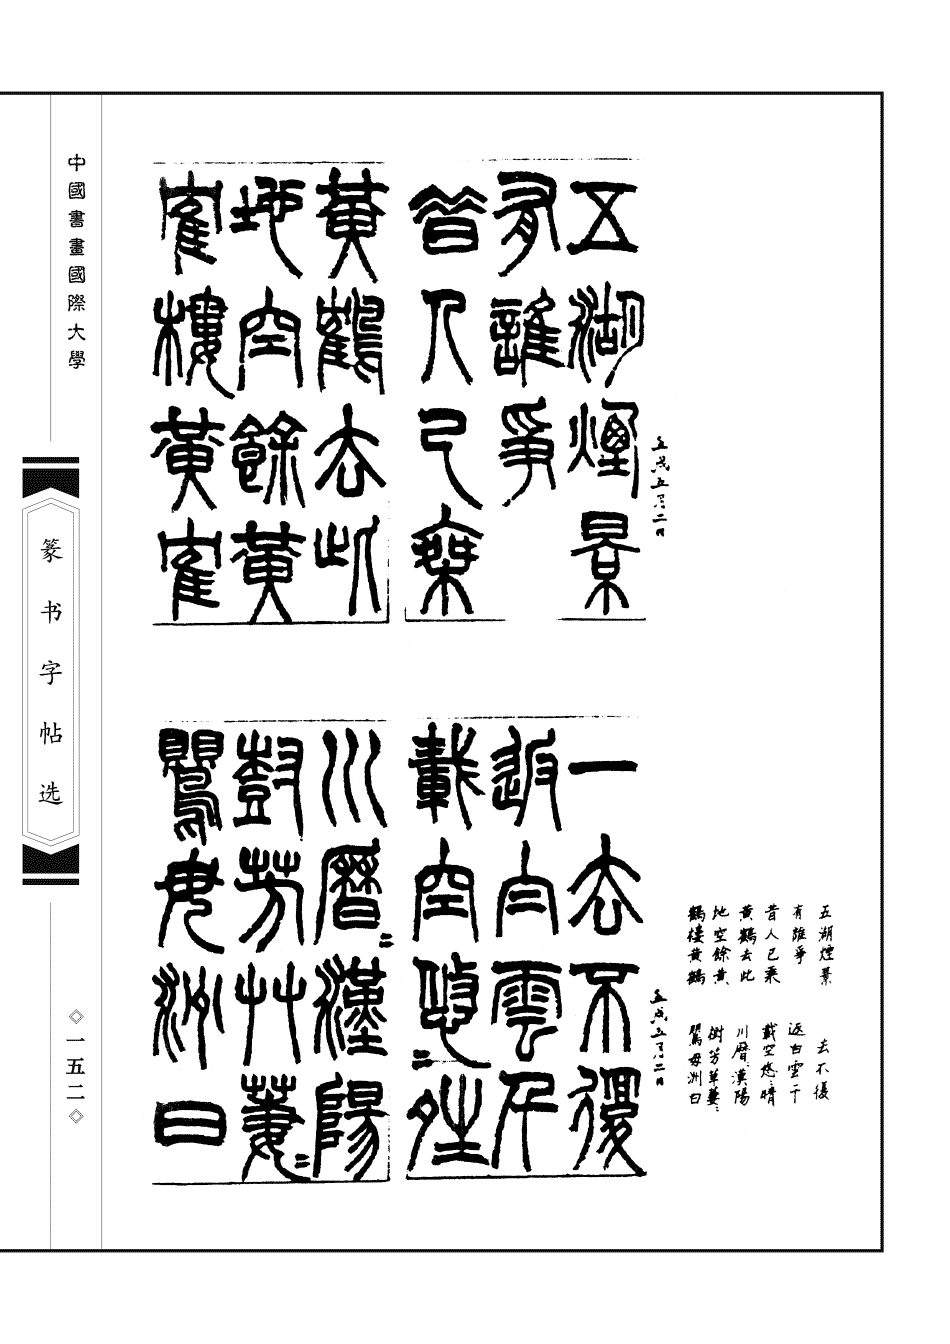 五湖煙景
有誰爭
昔人已乘
黃鶴去此
地空餘黃
寉樓黃寉
五月二日
一去不復
返白雲千
載空悠〻晴
川曆〻漢陽
樹芳艸萋〻
鸎毋洲日
五月二日
五湖煙景
有誰爭
昔人已乘
黃鶴去此
地空餘黃
鶴樓黃鶴
去不復
返白雲千
載空悠〻晴
川曆〻漢陽
樹芳草萋〻
鸎毋洲日
中國書畫國際大學
篆书字帖选
◇一五二◇